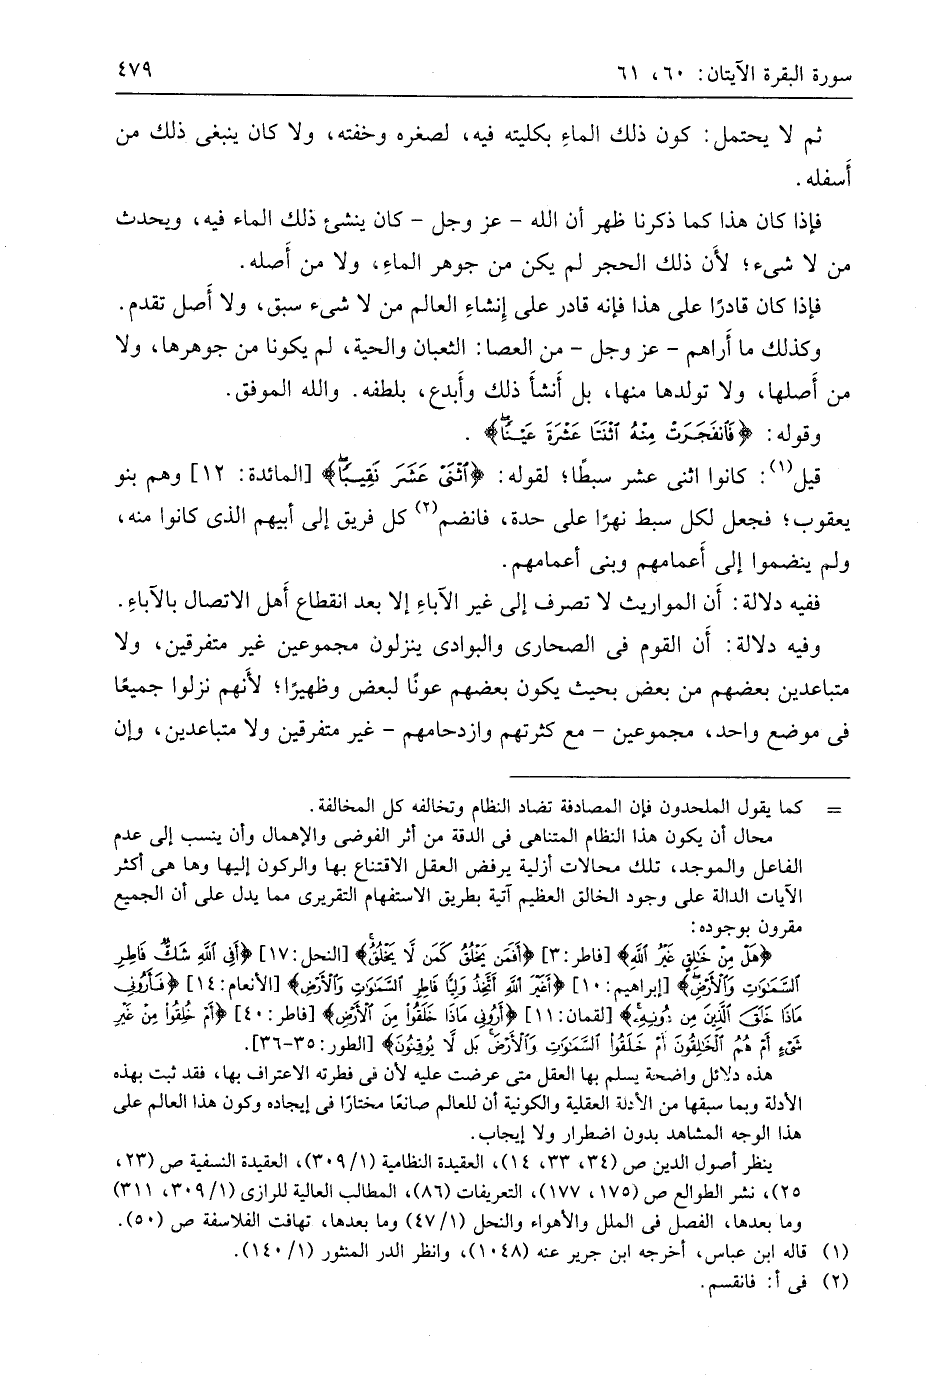 سورة البقرة الآيتان: ٦٠، ٦١
٤٧٩
ثم لا يحتمل: كون ذلك الماءِ بكليته فيه، لصغره وخفته، ولا كان ينبغى ذلك من
أَسفله.
فإذا كان هذا كما ذكرنا ظهر أن الله - عز وجل - كان ينشئ ذلك الماء فيه، ويحدث
من لا شىء؛ لأن ذلك الحجر لم يكن من جوهر الماءِ، ولا من أَصله.
فإذا كان قادرًا على هذا فإنه قادر على إِنشاءِ العالم من لا شىء سبق، ولا أَصل تقدم.
وكذلك ما أَراهم - عز وجل - من العصا: الثعبان والحية، لم يكونا من جوهرها، ولا
من أَصلها، ولا تولدها منها، بل أَنشأَ ذلك وأَبدع، بلطفه. والله الموفق.
وقوله: ﴿فَٱنفَجَرَتْ مِنْهُ ٱثْنَتَا عَشْرَةَ عَيْنًا﴾ .
قيل(١): كانوا اثنى عشر سبطًا؛ لقوله: ﴿ٱثْنَىْ عَشَرَ نَقِيبًا﴾ [المائدة: ١٢] وهم بنو
يعقوب؛ فجعل لكل سبط نهرًا على حدة، فانضم(٢) كل فريق إلى أبيهم الذى كانوا منه،
ولم ينضموا إلى أَعمامهم وبنى أعمامهم.
ففيه دلالة: أن المواريث لا تصرف إلى غير الآباءِ إلا بعد انقطاع أَهل الاتصال بالآباءِ.
وفيه دلالة: أَن القوم فى الصحارى والبوادى ينزلون مجموعين غير متفرقين، ولا
متباعدين بعضهم من بعض بحيث يكون بعضهم عونًا لبعض وظهيرًا؛ لأَنهم نزلوا جميعًا
فى موضع واحد، مجموعين - مع كثرتهم وازدحامهم - غير متفرقين ولا متباعدين، وإن
= كما يقول الملحدون فإن المصادفة تضاد النظام وتخالفه كل المخالفة.
محال أن يكون هذا النظام المتناهى فى الدقة من أثر الفوضى والإهمال وأن ينسب إلى عدم
الفاعل والموجد، تلك محالات أزلية يرفض العقل الاقتناع بها والركون إليها وها هى أكثر
الآيات الدالة على وجود الخالق العظيم آتية بطريق الاستفهام التقريرى مما يدل على أن الجميع
مقرون بوجوده:
﴿هَلْ مِنْ خَٰلِقٍ غَيْرُ ٱللَّهِ﴾ [فاطر:٣] ﴿أَفَمَن يَخْلُقُ كَمَن لَّا يَخْلُقُ﴾ [النحل:١٧] ﴿أَفِى ٱللَّهِ شَكٌّ فَاطِرِ
ٱلسَّمَٰوَٰتِ وَٱلْأَرْضِ﴾ [إبراهيم:١٠] ﴿أَغَيْرَ ٱللَّهِ أَتَّخِذُ وَلِيًّا فَاطِرِ ٱلسَّمَٰوَٰتِ وَٱلْأَرْضِ﴾ [الأنعام:١٤] ﴿فَأَرُونِى
مَاذَا خَلَقَ ٱلَّذِينَ مِن دُونِهِۦ﴾ [لقمان:١١] ﴿أَرُونِى مَاذَا خَلَقُوا۟ مِنَ ٱلْأَرْضِ﴾ [فاطر:٤٠] ﴿أَمْ خُلِقُوا۟ مِنْ غَيْرِ
شَىْءٍ أَمْ هُمُ ٱلْخَٰلِقُونَ أَمْ خَلَقُوا۟ ٱلسَّمَٰوَٰتِ وَٱلْأَرْضَ بَل لَّا يُوقِنُونَ﴾ [الطور:٣٥-٣٦].
هذه دلائل واضحة يسلم بها العقل متى عرضت عليه لأن فى فطرته الاعتراف بها، فقد ثبت بهذه
الأدلة وبما سبقها من الأدلة العقلية والكونية أن للعالم صانعًا مختارًا فى إيجاده وكون هذا العالم على
هذا الوجه المشاهد بدون اضطرار ولا إيجاب.
ينظر أصول الدين ص (٣٤، ٣٣، ١٤)، العقيدة النظامية (٣٠٩/١)، العقيدة النسفية ص (٢٣،
٢٥)، نشر الطوالع ص (١٧٥، ١٧٧)، التعريفات (٨٦)، المطالب العالية للرازى (٣٠٩/١، ٣١١)
وما بعدها، الفصل فى الملل والأهواء والنحل (٤٧/١) وما بعدها، تهافت الفلاسفة ص (٥٠).
(١) قاله ابن عباس، أخرجه ابن جرير عنه (١٠٤٨)، وانظر الدر المنثور (١٤٠/١).
(٢) فى أ: فانقسم.